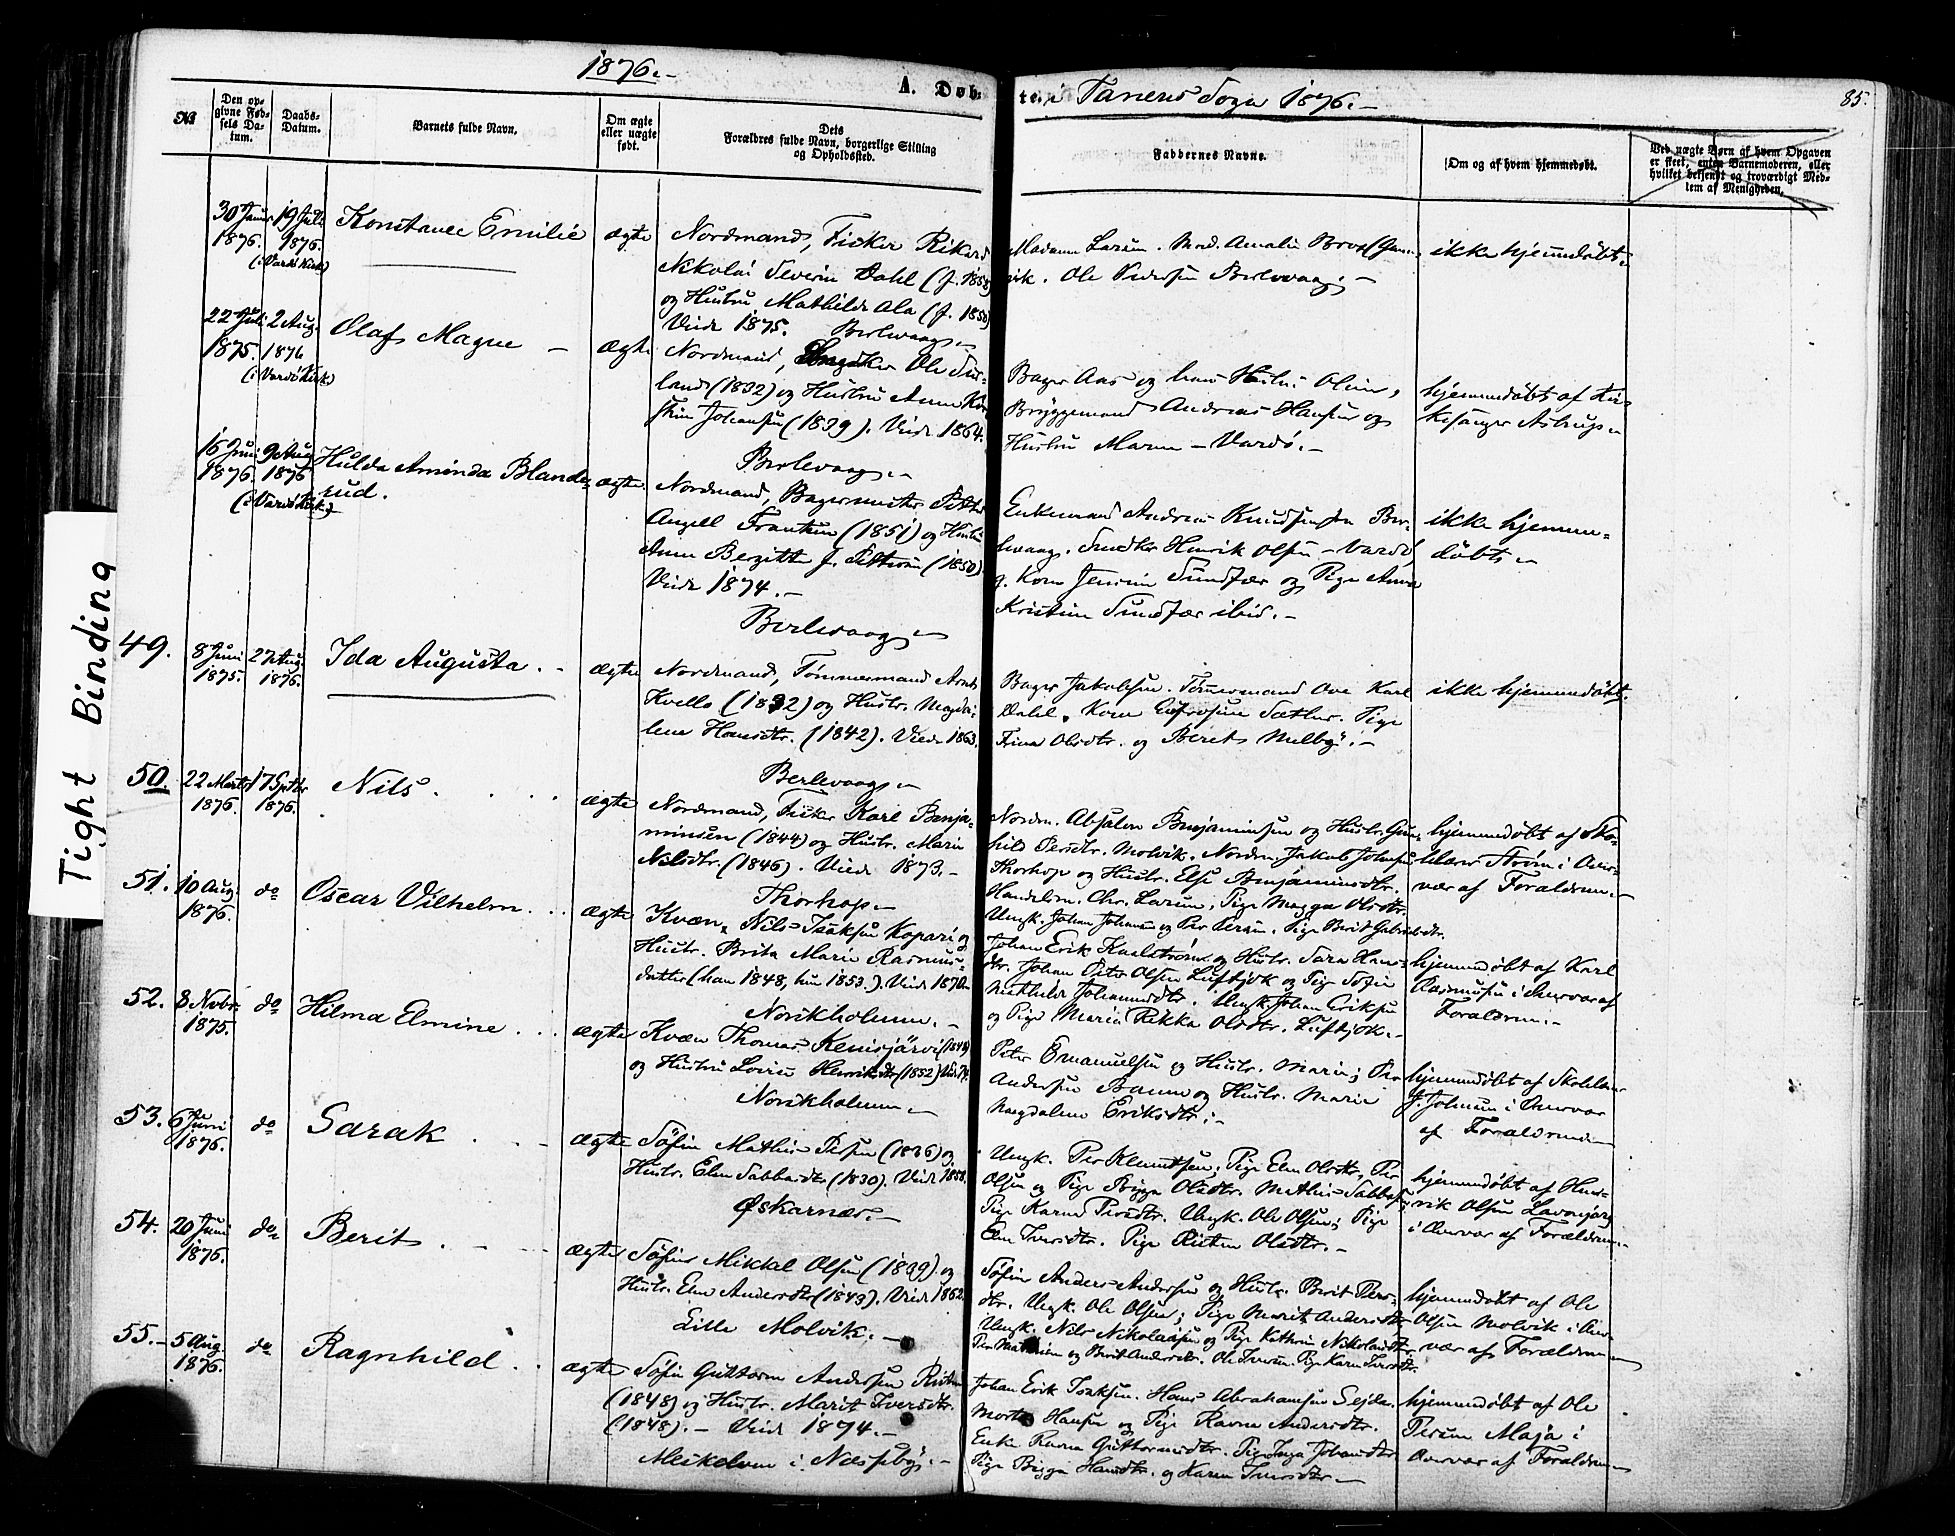 1876.-
A. Døb-
te i Tanens Sogn 1876.-
85.
№
Den op-
givne Fød-
sels Da-
tum.
Daabs-
Datum.
Barnets fulde Navn.
Om ægte
eller uægte
født.
Dets
Forældres fulde Navn, borgerlige Stilling
og Opholdssted.
Faddernes Navne.
Om og af hvem hjemmedøbt.
Ved uægte Børn af hvem Opgaven
er skeet, enten Barnemoderen, eller
hvilket bekjendt og troværdigt Med-
lem af Menigheden.
Tight Binding
30
1876.
19 Juli
1876.
(i Vardø Kirk)
Konstance Emilie
ægte
Nordmand, Fisker Rikard
Nikolai Severin Dahl (f. 1858)
og Hustru Mathilde Ala (f. 1850)
Viede 1875. Berlevaag.-
Madame Larsen. Mad. Amalie
vik. Ole Pedersen Berlevaag.-
ikke hjemmedøbt.-
22 Juli
1875.
2 Aug.
1876
(i Vardø Kirk)
Olaf Magne -
ægte
Nordmand, Ole
land (1832) og Hustru Anne
Johansen (1839). Viede 1864.
Berlevaag.-
Bager Aas og hans Hustru Oline,
Bryggemand Andreas Hansen og
Hustru Maren - Vardø.-
hjemmedøbt af Kir-
kesanger Astrup.-
15 Juni
1876.
9 Aug
1876
(i Vardø Kirk)
Hulda Aminda Blande-
rud.
ægte.
Nordmand, Bagermester Petter
Angell Frantzen (1851) og Hustru
Anne Bergitte f. Pettersen (1850).
Viede 1874.-
Berlevaag.-
Enkemand Andreas Knudsen fra Ber-
levaag. Henrik Olsen - Vardø,
Kone Sundfær og Pige Anna
Kristine Sundfær ibid.-
ikke hjemme-
døbt.-
49.
8 Juni
1875.
27 Aug.
1876.
Ida Augusta. -
ægte
Nordmand, Tømmermand Arnt
Kvello (1832) og Hustr. Magda-
lena Hansdtr. (1842). Viede 1863.
Berlevaag.-
Bager Jakobsen. Tømmermand Ove Karl
Dahl. Kone Eufrosine Sæther. Pige
Trina Olsdtr. og Berit Melby.-
ikke hjemmedøbt.
50.
22 Marts
1876.
17 Septbr
1876.
Nils.
ægte
Nordmand, Fisker Karl Benja-
minsen (1844) og Hustr. Marie
Nilsdtr. (1846). Viede 1873.-
Thorhop.-
Nordm. Absalon Benjaminsen og Hustr. Gun-
hild Persdtr. Molvik. Nordm. Jakob Johnsen
Thorhop og Hustr. Else Benjaminsdtr.
Handelsm. Chr. Larsen; Pige Magga Olsdtr.
hjemmedøbt af Sko-
lelærer Strøm i Over-
vær af Forældrene.-
51.
10 Aug.
1876.
do
Oscar Vilhelm.
ægte
Kvæn, Nils Isaksen Kopari og
Hustr. Brita Marie Rasmus-
datter (han 1848, hun 1853.) Viede 1870.
Norskholmen.-
Ungk. Johan Johansen og Per Persen. Pige Berit Gabrielsdtr.
Johan Erik Karlstrøm og Hustr. Sara Hans-
dtr. Johan Peter Olsen Luftjok og Pige Sofie
Mathilde Johannesdtr. Ungk. Johan Eriksen
og Pige Maria Rikka Olsdtr. Luftjok.-
hjemmedøbt af Karl
Rasmusen i Overvær af
Forældrene.-
52.
8 Novbr.
1875.
do
Hilma Elmine
ægte
Kvæn Thomas Kemijärvi (1848)
og Hustru Lovise Henriksdtr (1852) Viede 74.
Norskholmen.-
Peter Emanuelsen og Hustr. Marie; Per
Andersen Banne og Hustr. Marie
Magdalene Eriksdtr.-
hjemmedøbt af Skolelær
J. Johnsen i Overvær
af Forældrene.-
53.
6 Juni
1876.
do
Sarak
ægte
Søfin Mathis Persen (1836) og
Hustr. Elen Sabbasdtr (1830). Viede 1858.
Øskarnæs.-
Ungk. Per Klemetsen; Pige Elen Olsdtr. Per
Olsen og Pige Bigga Olsdtr. Mathis Sabbasen;
Pige Karen Persdtr. Ungk. Ole Olsen; Pige
Elen Iversdtr. Pige Kristen Olsdtr.-
hjemmedøbt af Hen-
rik Olsen
i Overvær af Forældrene.-
54.
20 Juni
1876.
do
Berit
ægte
Søfin Mikkel Olsen (1839) og
Hustr. Elen Andersdtr (1843). Viede 1862.
Lille Molvik.-
Søfin Anders Andersen og Hustr. Berit Pers-
dtr. Ungk. Ole Olsen; Pige Marit Andersdtr.
Ungk. Nils Nikolaisen og Pige Kathrine Nikolaisdtr.
Per Mathisen og Berit Andersdtr. Ole Iversen. Pige Karen Iversdtr.
hjemmedøbt af Ole
Olsen Molvik i Over-
vær af Forældrene.-
55.-
5 Aug.
1876.
do
Ragnhild
ægte
Søfin Guttorm Andersen
(1848) og Hustr. Marit Iversdtr.
(1848).- Viede 1874.-
Meskelven i Næsseby.-
Johan Erik Isaksen. Hans Abrahamsen Sejda.
Morten Hansen og Pige Ravna Andersdtr.
Enke Ravna Guttormsdtr. Pige Inga Johansdtr.
Pige Bigga Hansdtr. og Karen Iversdtr.-
hjemmedøbt af Ole
Persen Maja i
Overvær af Forældrene.-